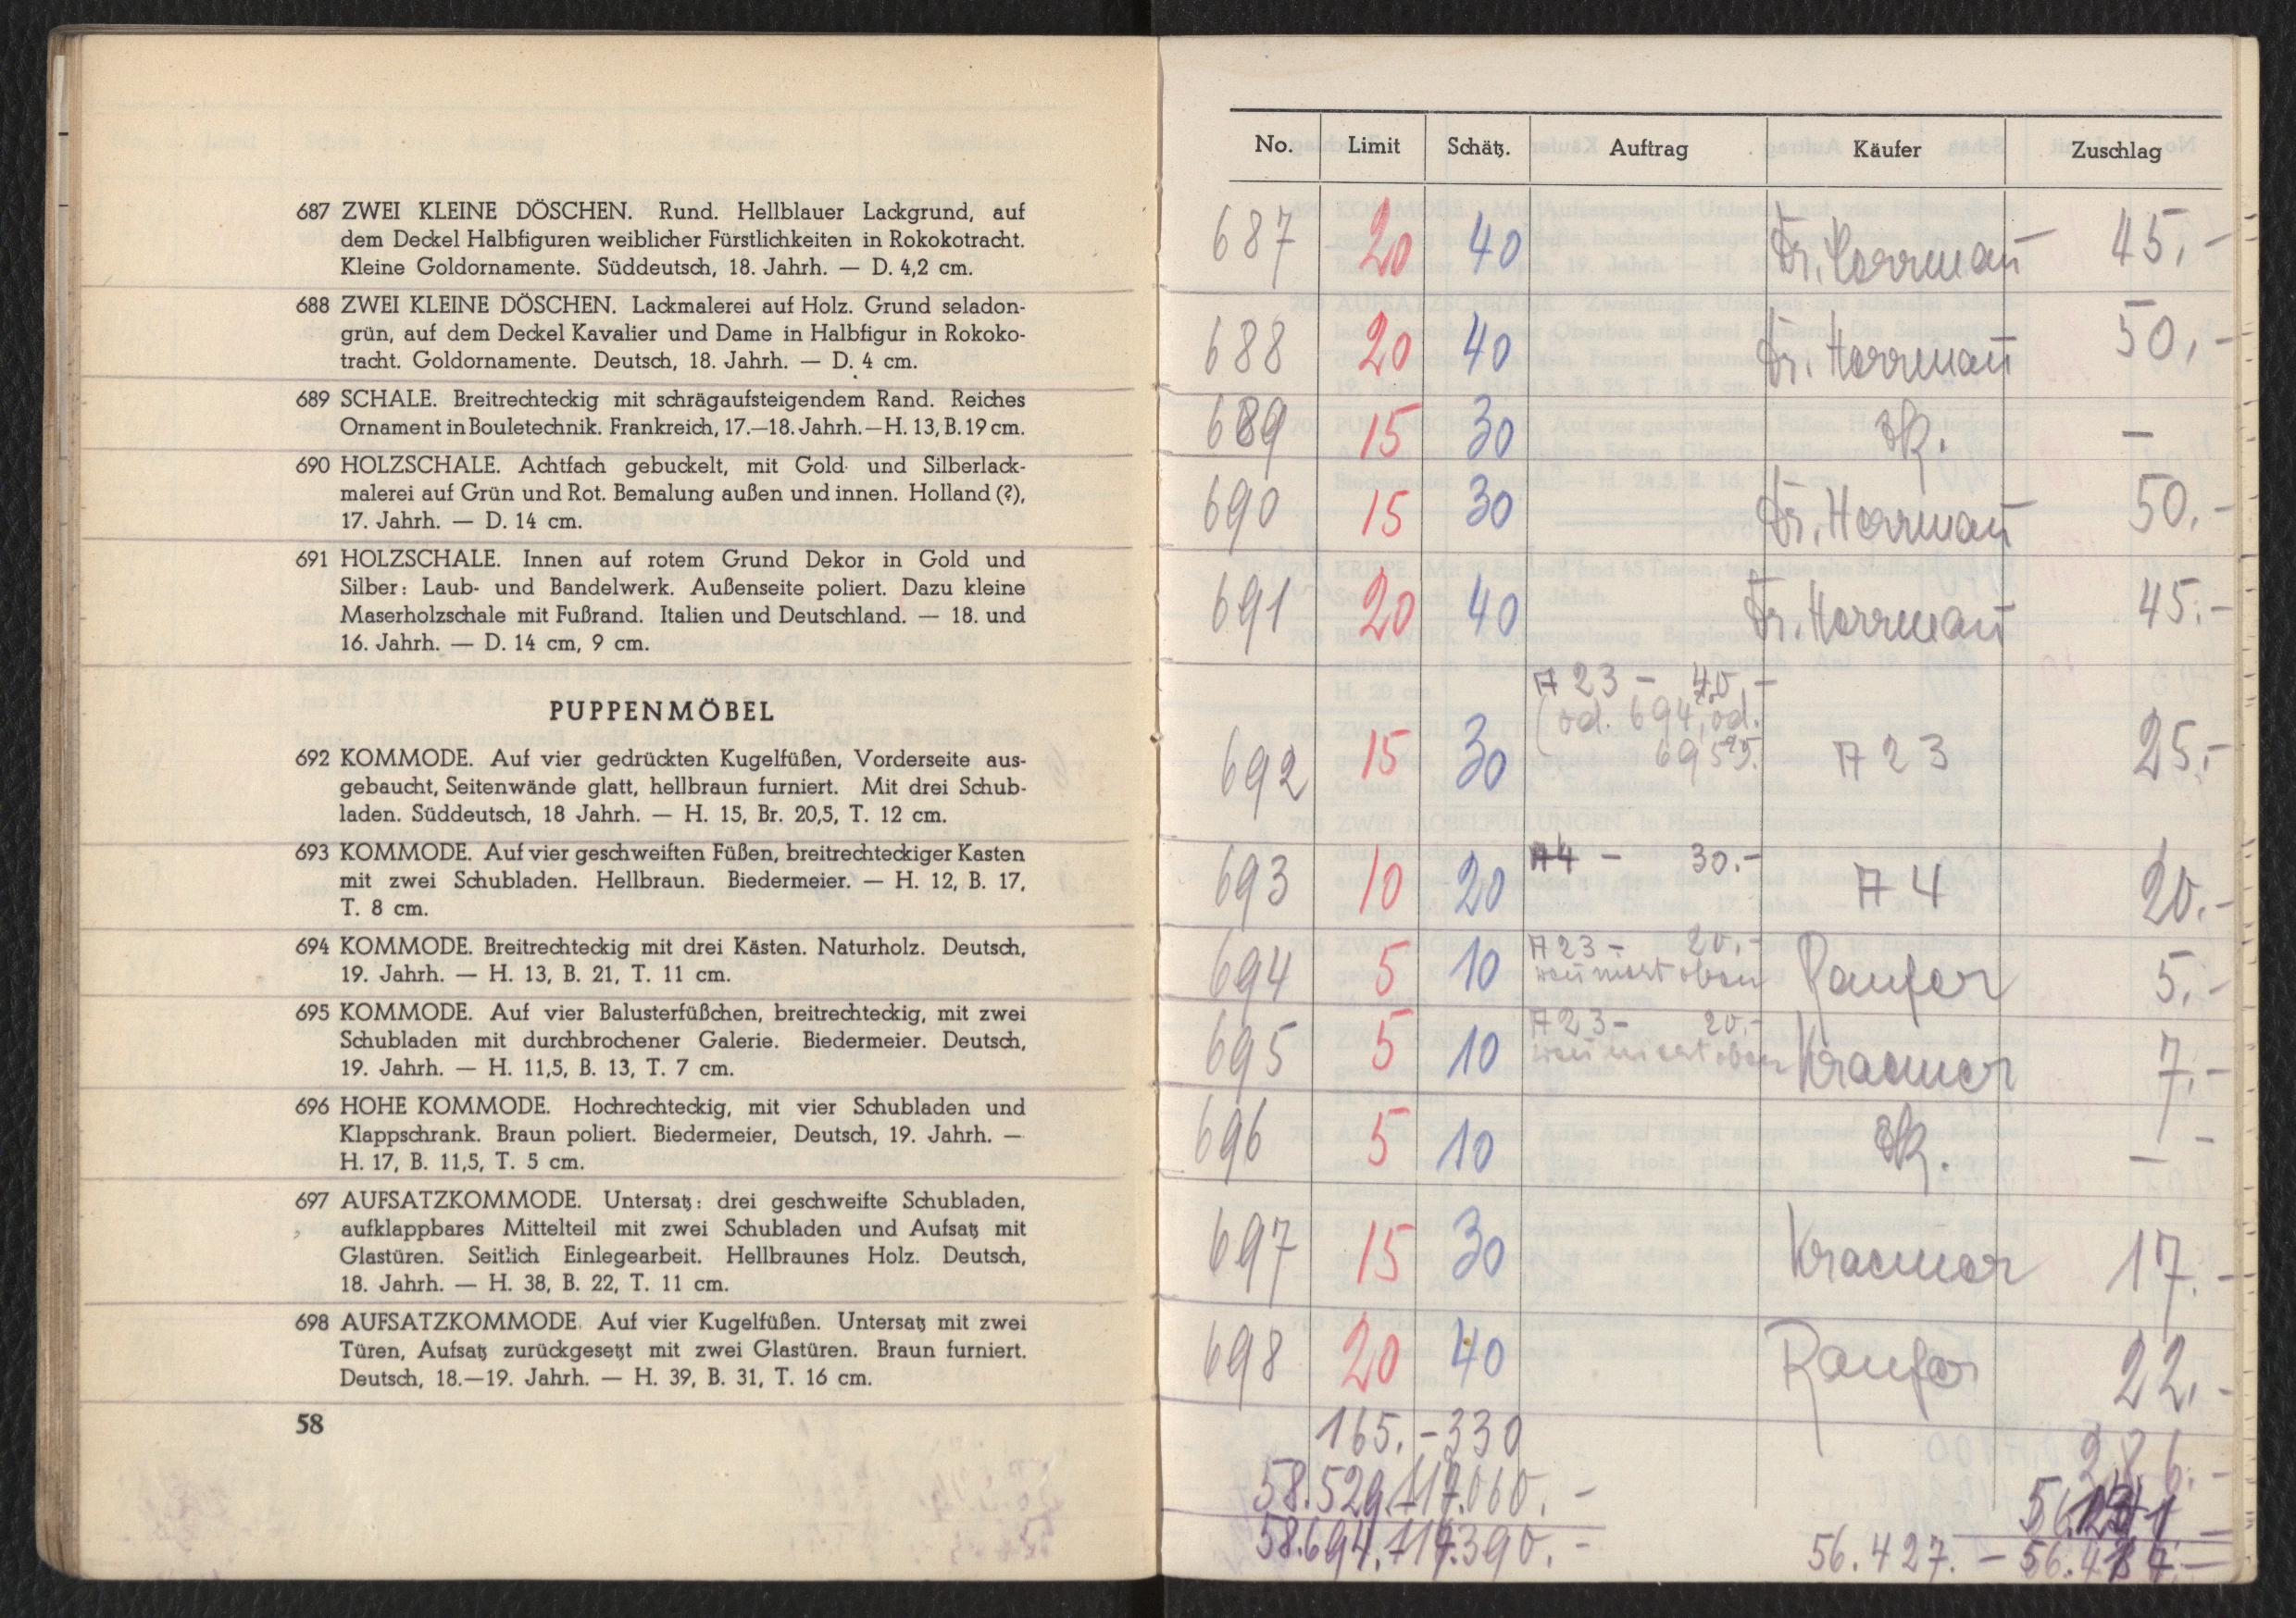 687 ZWEI KLEINE DÖSCHEN. Rund. Hellblauer Lackgrund, auf
dem Deckel Halbfiguren weiblicher Fürstlichkeiten in Rokokotracht.
Kleine Goldornamente. Süddeutsch, 18. Jahrh. — D. 4,2 cm.
688 ZWEI KLEINE DÖSCHEN. Lackmalerei auf Holz. Grund seladon-
grün, auf dem Deckel Kavalier und Dame in Halbfigur in Rokoko-
tracht. Goldornamente. Deutsch, 18. Jahrh. — D. 4 cm.
689 SCHALE. Breitrechteckig mit schrägaufsteigendem Rand. Reiches
Ornament in Bouletechnik. Frankreich, 17.—18. Jahrh.—H. 13, B. 19 cm.
690 HOLZSCHALE. Achtfach gebuckelt, mit Gold- und Silberlack-
malerei auf Grün und Rot. Bemalung außen und innen. Holland (?),
17. Jahrh. — D. 14 cm.
691 HOLZSCHALE. Innen auf rotem Grund Dekor in Gold und
Silber: Laub- und Bandelwerk. Außenseite poliert. Dazu kleine
Maserholzschale mit Fußrand. Italien und Deutschland. — 18. und
16. Jahrh. — D. 14 cm, 9 cm.
PUPPENMÖBEL
692 KOMMODE. Auf vier gedrückten Kugelfüßen, Vorderseite aus-
gebaucht, Seitenwände glatt, hellbraun furniert. Mit drei Schub-
laden. Süddeutsch, 18 Jahrh. — H. 15, Br. 20,5, T. 12 cm.
693 KOMMODE. Auf vier geschweiften Füßen, breitrechteckiger Kasten
mit zwei Schubladen. Hellbraun. Biedermeier. — H. 12, B. 17,
T. 8 cm.
694 KOMMODE. Breitrechteckig mit drei Kästen. Naturholz. Deutsch,
19. Jahrh. — H. 13, B. 21, T. 11 cm.
695 KOMMODE. Auf vier Balusterfüßchen, breitrechteckig, mit zwei
Schubladen mit durchbrochener Galerie. Biedermeier. Deutsch,
19. Jahrh. — H. 11,5, B. 13, T. 7 cm.
696 HOHE KOMMODE. Hochrechteckig, mit vier Schubladen und
Klappschrank. Braun poliert. Biedermeier, Deutsch, 19. Jahrh. —
H. 17, B. 11,5, T. 5 cm.
697 AUFSATZKOMMODE. Untersatz: drei geschweifte Schubladen,
aufklappbares Mittelteil mit zwei Schubladen und Aufsatz mit
Glastüren. Seitlich Einlegearbeit. Hellbraunes Holz. Deutsch,
18. Jahrh. — H. 38, B. 22, T. 11 cm.
698 AUFSATZKOMMODE. Auf vier Kugelfüßen. Untersatz mit zwei
Türen, Aufsatz zurückgesetzt mit zwei Glastüren. Braun furniert.
Deutsch, 18.—19. Jahrh. — H. 39, B. 31, T. 16 cm.
58
No. Limit Schätz. Auftrag Käufer Zuschlag
687 20 40 Dr. Herrman̄ 45,-
688 20 40 Dr. Herrman̄ 50,-
689 15 30 —
690 15 30 Dr. Herrman̄ 50,-
691 20 40 Dr. Herrman̄ 45.-
A 23 - 40,-
(od. 694, od.
695
692 15 30 A 23 25.-
693 10 20 A4 - 30.- A 4 20.-
694 5 10 A 23 - 20.- Ranfer 5.-
wen̄ nicht oben
695 5 10 A 23 - 20.- Kraemer 7.-
wen̄ nicht oben
696 5 10 —
697 15 30 Kraemer 17.-
698 20 40 Ranfer 22.-
165.- 330
286.-
58.529.- 117.060.-
58.694.- 117.390.-
56.427.-